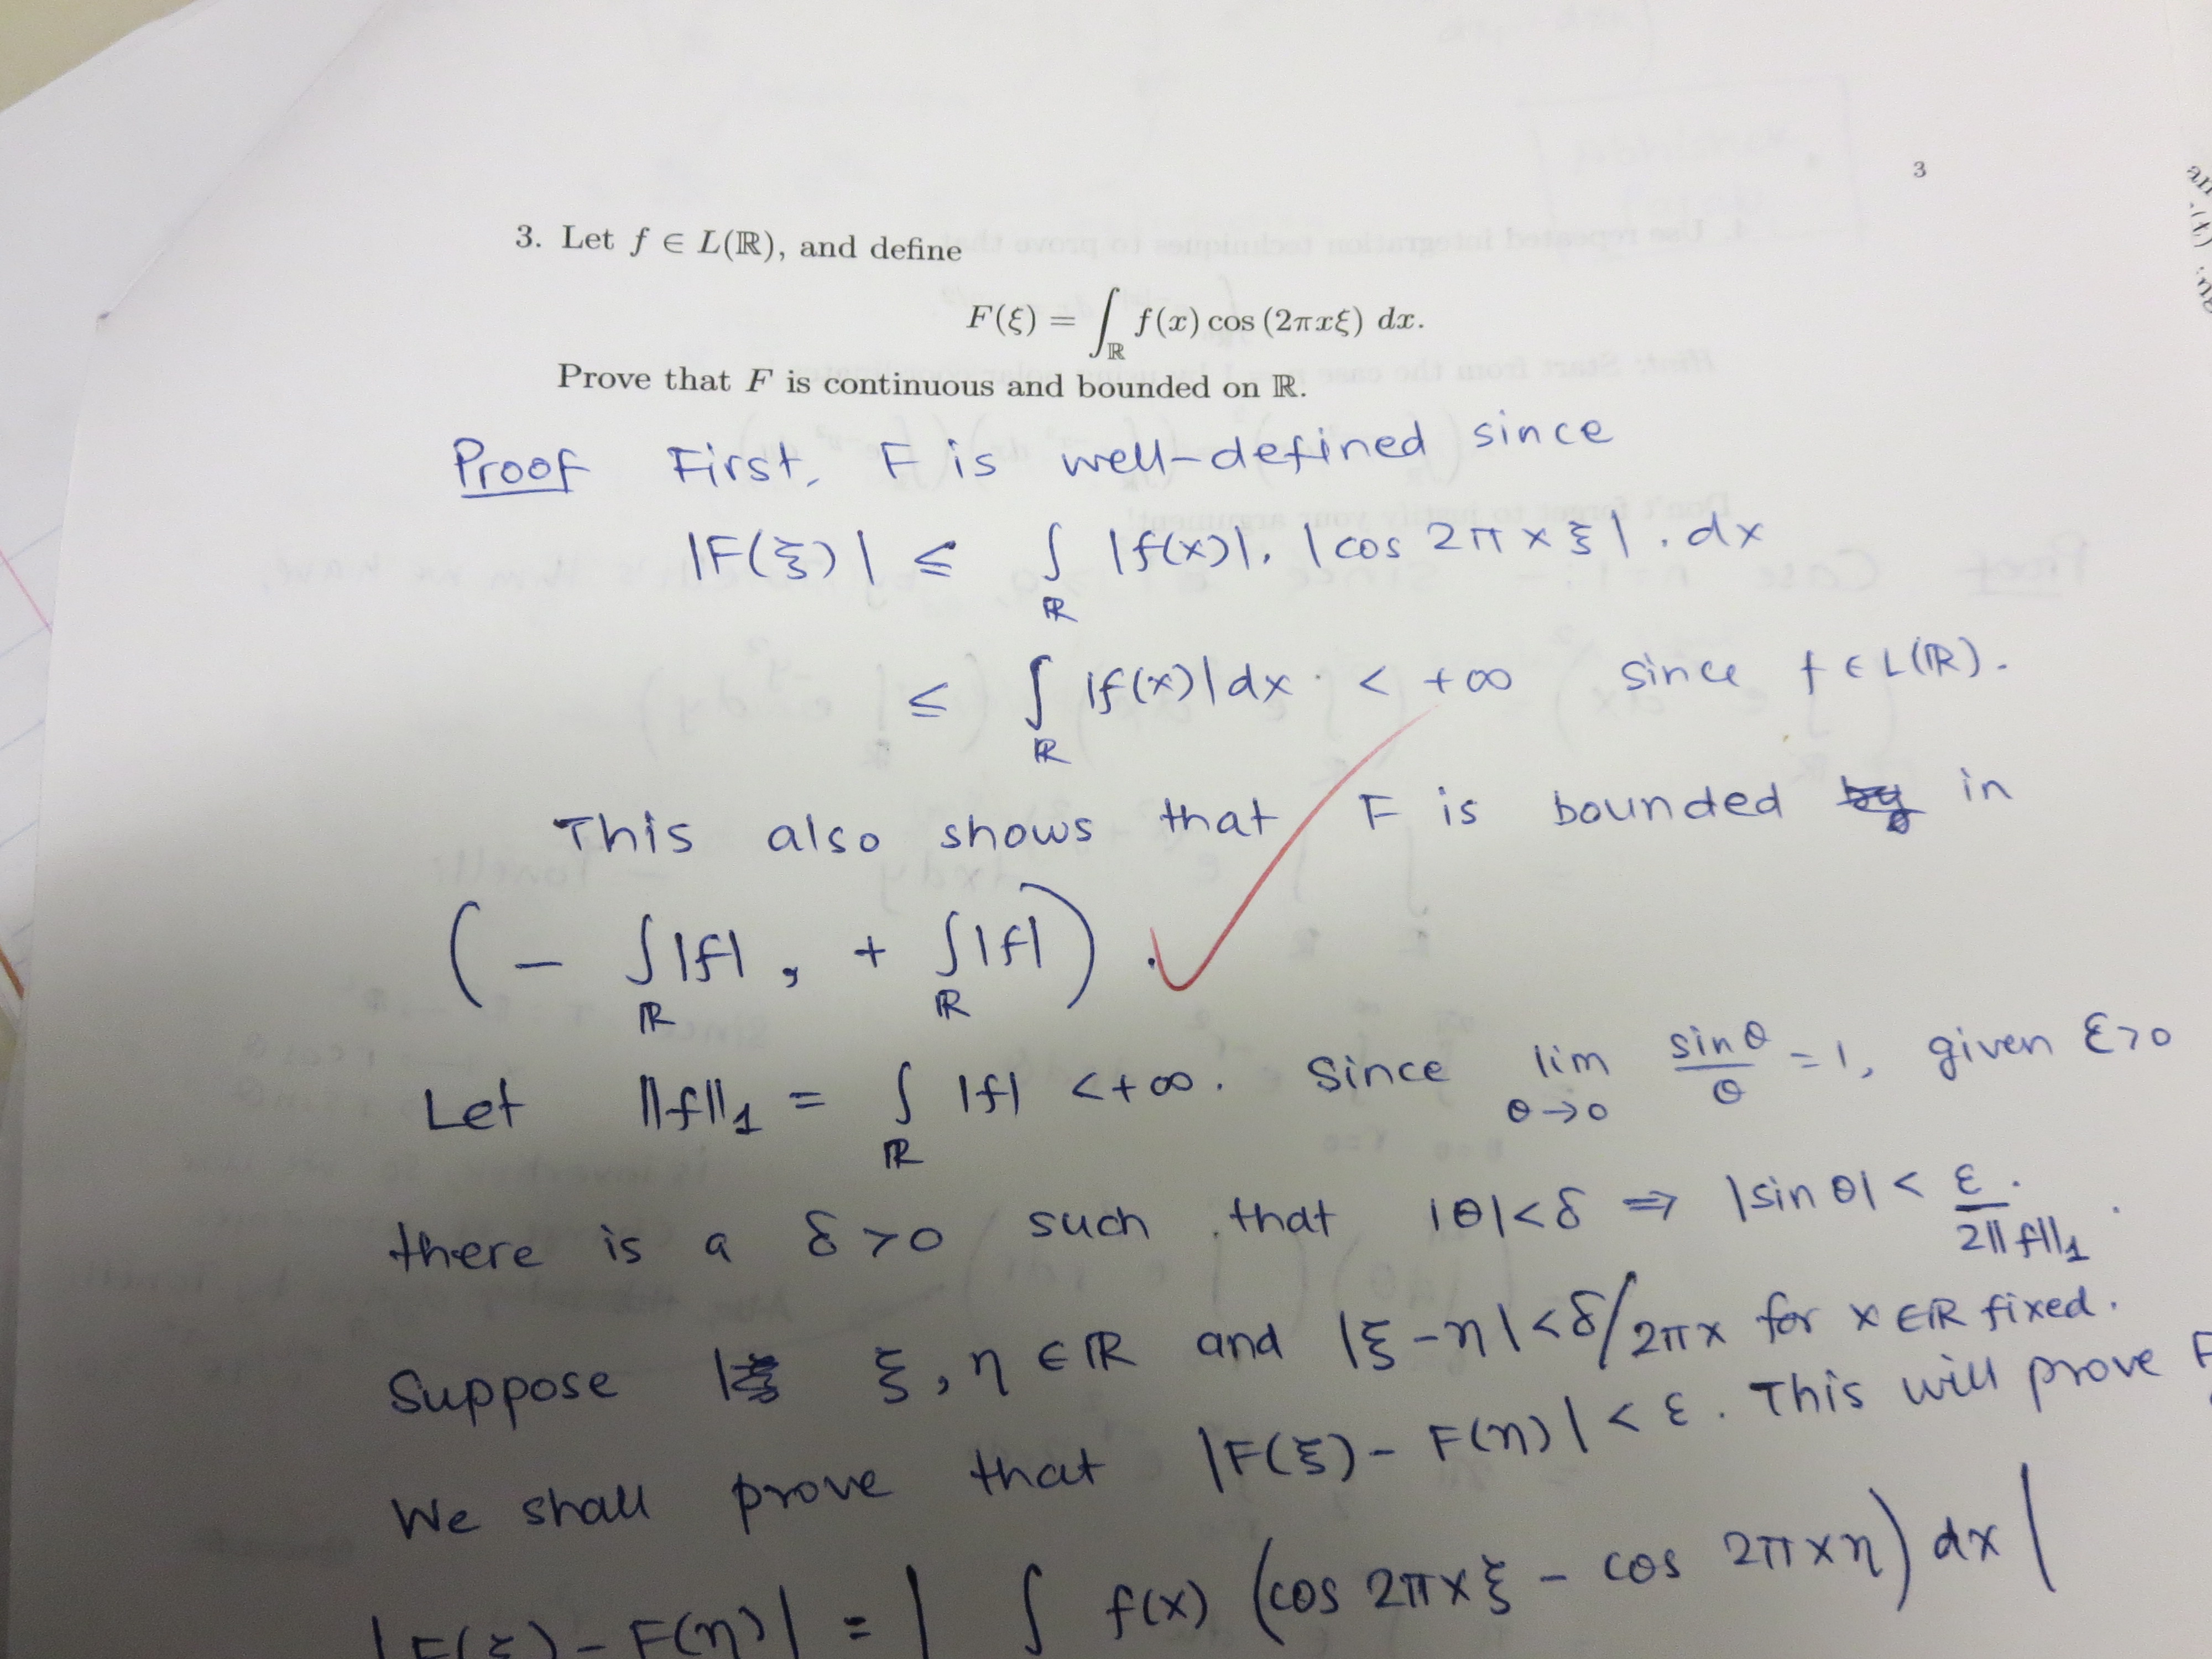 3
3. Let f ∈ L(ℝ), and define
F(ξ) = ∫_ℝ f(x) cos (2πxξ) dx.
Prove that F is continuous and bounded on ℝ.
Proof First, F is well-defined since
|F(ξ)| ≤ ∫_ℝ |f(x)|. |cos 2πxξ|. dx
≤ ∫_ℝ |f(x)|dx. < +∞ since f ∈ L(ℝ).
This also shows that F is bounded in
(- ∫_ℝ |f|, + ∫_ℝ |f|).
Let ||f||₁ = ∫_ℝ |f| < +∞. Since lim_{θ→0} sin θ / θ = 1, given ε>0
there is a δ>0 such that |θ|<δ ⇒ |sin θ| < ε / 2||f||₁.
Suppose ξ, η ∈ ℝ and |ξ-η| < δ/2πx for x∈ℝ fixed.
We shall prove that |F(ξ) - F(η)| < ε. This will prove F
|F(ξ) - F(η)| = | ∫ f(x) (cos 2πxξ - cos 2πxη) dx |